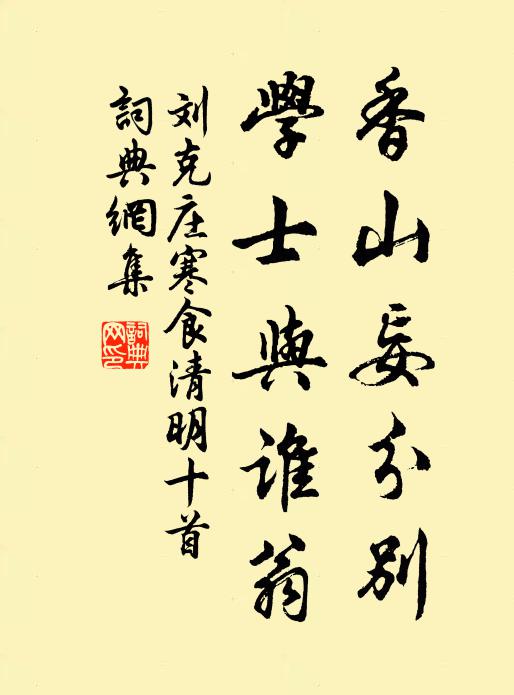 香山妄分别
學士與誰翁
刘克庄寒食清明十首
詞典網集
詞典網印